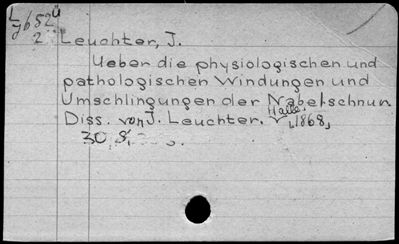 Leuchter, J.
Ueber die physiologischen und
pathologischen Windungen und
Umschlingungen der Nabelschnur.
Halle,
Diss. von J. Leuchter. 1868,
30 S.